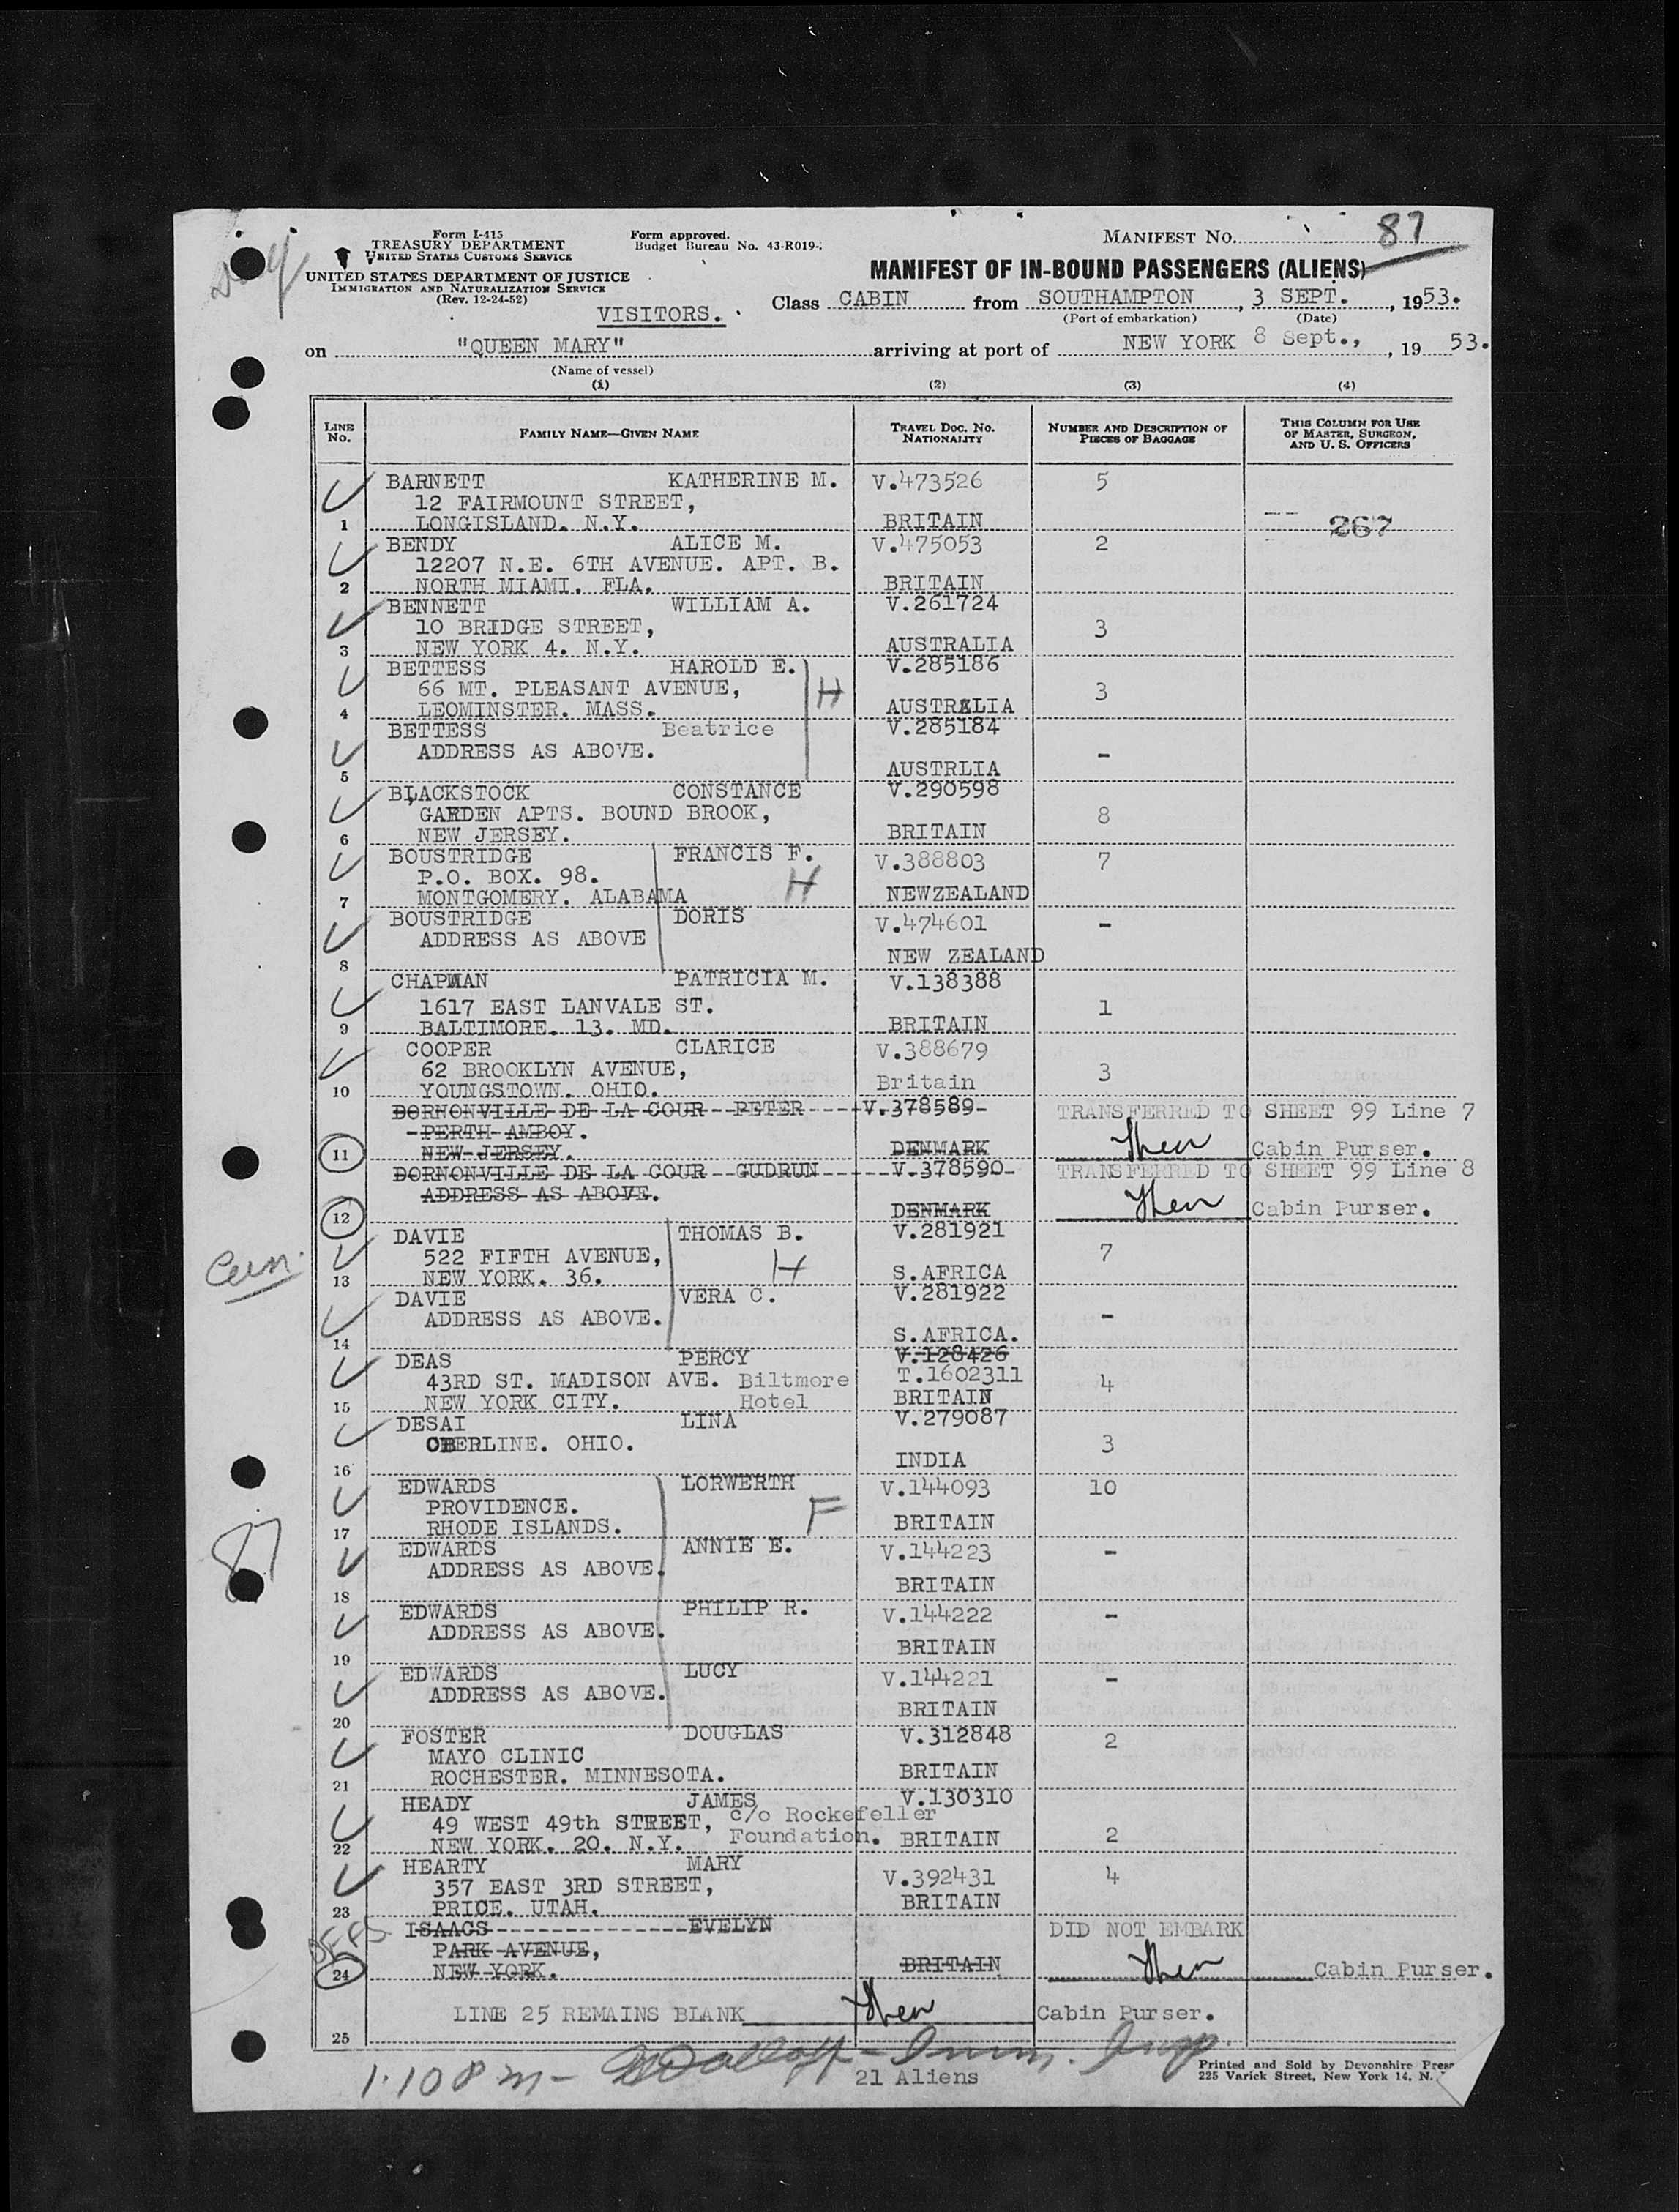 Form I-415
TREASURY DEPARTMENT
UNITED STATES CUSTOMS SERVICE
UNITED STATES DEPARTMENT OF JUSTICE
IMMIGRATION AND NATURALIZATION SERVICE
(Rev. 12-24-52)
Form approved.
Budget Bureau No. 43-R019-
MANIFEST NO. 87
MANIFEST OF IN-BOUND PASSENGERS (ALIENS)
VISITORS.
Class CABIN from SOUTHAMPTON, 3 SEPT., 1953.
(Port of embarkation) (Date)
on "QUEEN MARY" arriving at port of NEW YORK 8 Sept., 19 53.
(Name of vessel)
(1) (2) (3) (4)
LINE No. FAMILY NAME—GIVEN NAME TRAVEL DOC. NO. NATIONALITY NUMBER AND DESCRIPTION OF PIECES OF BAGGAGE THIS COLUMN FOR USE OF MASTER, SURGEON, AND U. S. OFFICERS
BARNETT KATHERINE M. V.473526 5
12 FAIRMOUNT STREET,
1 LONGISLAND. N.Y. BRITAIN 267
BENDY ALICE M. V.475053 2
12207 N.E. 6TH AVENUE. APT. B.
2 NORTH MIAMI. FLA. BRITAIN
BENNETT WILLIAM A. V.261724
10 BRIDGE STREET, 3
3 NEW YORK 4. N.Y. AUSTRALIA
BETTESS HAROLD E. V.285186
66 MT. PLEASANT AVENUE, H 3
4 LEOMINSTER. MASS. AUSTRALIA
BETTESS Beatrice V.285184
ADDRESS AS ABOVE. -
5 AUSTRLIA
BLACKSTOCK CONSTANCE V.290598
GARDEN APTS. BOUND BROOK, 8
6 NEW JERSEY. BRITAIN
BOUSTRIDGE FRANCIS F. V.388803 7
P.O. BOX. 98. H
7 MONTGOMERY. ALABAMA NEWZEALAND
BOUSTRIDGE DORIS V.474601 -
ADDRESS AS ABOVE
8 NEW ZEALAND
CHAPMAN PATRICIA M. V.138388
1617 EAST LANVALE ST. 1
9 BALTIMORE. 13. MD. BRITAIN
COOPER CLARICE V.388679
62 BROOKLYN AVENUE, 3
10 YOUNGSTOWN. OHIO. Britain
DORNONVILLE DE LA COUR PETER V.378589 TRANSFERRED TO SHEET 99 Line 7
PERTH AMBOY.
11 NEW JERSEY. DENMARK Cabin Purser.
DORNONVILLE DE LA COUR GUDRUN V.378590 TRANSFERRED TO SHEET 99 Line 8
ADDRESS AS ABOVE.
12 DENMARK Cabin Purser.
DAVIE THOMAS B. V.281921
522 FIFTH AVENUE, H 7
13 NEW YORK. 36. S.AFRICA
DAVIE VERA C. V.281922
ADDRESS AS ABOVE. -
14 S.AFRICA.
DEAS PERCY V.128426
43RD ST. MADISON AVE. Biltmore T.1602311 4
15 NEW YORK CITY. Hotel BRITAIN
DESAI LINA V.279087
OBERLINE. OHIO. 3
16 INDIA
EDWARDS LORWERTH V.144093 10
PROVIDENCE. F
17 RHODE ISLANDS. BRITAIN
EDWARDS ANNIE E. V.144223 -
ADDRESS AS ABOVE.
18 BRITAIN
EDWARDS PHILIP R. V.144222 -
ADDRESS AS ABOVE.
19 BRITAIN
EDWARDS LUCY V.144221 -
ADDRESS AS ABOVE.
20 BRITAIN
FOSTER DOUGLAS V.312848 2
MAYO CLINIC
21 ROCHESTER. MINNESOTA. BRITAIN
HEADY JAMES V.130310
49 WEST 49th STREET, c/o Rockefeller
22 NEW YORK. 20. N.Y. Foundation. BRITAIN 2
HEARTY MARY V.392431 4
357 EAST 3RD STREET,
23 PRICE. UTAH. BRITAIN
ISAACS EVELYN DID NOT EMBARK
PARK AVENUE,
24 NEW YORK. BRITAIN Cabin Purser.
LINE 25 REMAINS BLANK Cabin Purser.
25
87
21 Aliens
Printed and Sold by Devonshire Press
225 Varick Street, New York 14, N.